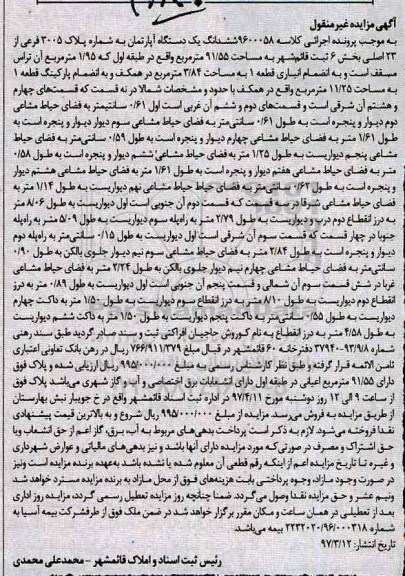 آگهی مزایده غیرمنقول
به موجب پرونده اجرائی کلاسه ۹۶۰۰۰۵۸ ششدانگ یک دستگاه آپارتمان به شماره پلاک ۳۰۰۵ فرعی از
۲۳ اصلی بخش ۶ ثبت قائمشهر به مساحت ۹۱/۵۵ مترمربع واقع در طبقه اول که ۱/۹۵ مترمربع آن تراس
مسقف است و به انضمام انباری قطعه ۱ به مساحت ۳/۸۴ مترمربع در همکف و به انضمام پارکینگ قطعه ۱
به مساحت ۱۱/۲۵ مترمربع واقع در همکف با حدود و مشخصات شمالا در نه قسمت که قسمت‌های چهارم
و هشتم آن شرقی است و قسمت‌های دوم و ششم آن غربی است اول ۰/۶۱ سانتیمتر به فضای حیاط مشاعی
دوم دیوار و پنجره است به طول ۰/۶۱ سانتی‌متر به فضای حیاط مشاعی سوم دیوار دیوار و پنجره است به
طول ۱/۶۱ متر به فضای حیاط مشاعی چهارم دیوار و پنجره است به طول ۰/۵۹ سانتی‌متر به فضای حیاط
مشاعی پنجم دیواریست به طول ۱/۲۵ متر به فضای حیاط مشاعی ششم دیوار و پنجره است به طول ۰/۵۸
متر به فضای حیاط مشاعی هفتم دیوار و پنجره است به طول ۱/۶۱ متر به فضای حیاط مشاعی هشتم دیوار
و پنجره است به طول ۰/۶۲ سانتی‌متر به فضای حیاط حیاط مشاعی نهم دیواریست به طول ۱/۱۴ متر به
فضای حیاط مشاعی شرقا در سه قسمت که قسمت دوم آن جنوبی است اول دیواریست به طول ۸/۰۶ متر
به درز انقطاع دوم درب و دیواریست به طول ۲/۷۹ متر به راه‌پله سوم دیواریست به طول ۵/۰۹ متر به راه‌پله
جنوبا در چهار قسمت که قسمت سوم آن شرقی است اول دیواریست به طول ۰/۱۵ سانتی‌متر به راه‌پله دوم
دیوار و پنجره است به طول ۲/۸۴ متر به فضای حیاط مشاعی سوم نیم دیوار جلوی بالکن به طول ۰/۹۰
سانتی‌متر به فضای حیاط مشاعی چهارم نیم دیوار جلوی بالکن به طول ۲/۲۴ متر به فضای حیاط مشاعی
غربا در شش قسمت سوم آن شمالی و قسمت پنجم آن جنوبی است اول دیواریست به طول ۰/۸۹ متر به درز
انقطاع دوم دیواریست به طول ۸/۱۰ متر به درز انقطاع سوم دیواریست به طول ۱/۵۰ متر به داکت چهارم
دیواریست به طول ۰/۵۵ سانتی‌متر به داکت پنجم دیواریست به طول ۱/۵۰ متر به داکت ششم دیواریست
به طول ۴/۵۸ متر به درز انقطاع به نام کوروش حاجیان افراکتی ثبت و سند صادر گردید طبق سند رهنی
شماره ۹۳/۹/۸-۳۷۹۴۰ دفترخانه ۶۰ قائمشهر در قبال مبلغ ۷۶۶/۹۱۱/۳۷۹ ریال در رهن بانک تعاونی اعتباری
ثامن الائمه قرار گرفته و طبق نظر کارشناس رسمی به مبلغ ۹۹۵/۰۰۰/۰۰۰ ریال ارزیابی شده و پلاک فوق
دارای ۹۱/۵۵ مترمربع اعیانی در طبقه اول دارای انشعابات برق اختصاصی و آب و گاز شهری می‌باشد پلاک فوق
از ساعت ۹ الی ۱۲ روز دوشنبه مورخ ۹۷/۴/۱۱ در اداره ثبت اسناد قائمشهر واقع در خ جویبار نبش بهارستان
از طریق مزایده به فروش می‌رسد. مزایده از مبلغ ۹۹۵/۰۰۰/۰۰۰ ریال شروع و به بالاترین قیمت پیشنهادی
نقدا فروخته می‌شود. لازم به ذکر است پرداخت بدهی‌های مربوط به آب، برق، گاز اعم از حق انشعاب ویا
حق اشتراک و مصرف در صورتی‌که مورد مزایده دارای آنها باشد و نیز بدهی‌های مالیاتی و عوارض شهرداری
و غیره تا تاریخ مزایده اعم از اینکه رقم قطعی آن معلوم شده یا نشده باشد به‌عهده برنده مزایده است ونیز
در صورت وجود مازاد، وجوه پرداختی بابت هزینه‌های فوق از محل مازاد به برنده مزایده مسترد خواهد شد
ونیم عشر و حق مزایده نقدا وصول می‌گردد. ضمنا چنانچه روز مزایده تعطیل رسمی گردد، مزایده روز اداری
بعد از تعطیلی در همان ساعت و مکان مقرر برگزار خواهد شد در ضمن ملک فوق از طرف‌شرکت بیمه آسیا به
شماره ۲۲۳۲۰۲۰/۹۶/۰۰۰۳۱۸ بیمه می‌باشد.
تاریخ انتشار: ۹۷/۳/۱۲
رئیس ثبت اسناد و املاک قائمشهر - محمدعلی محمدی